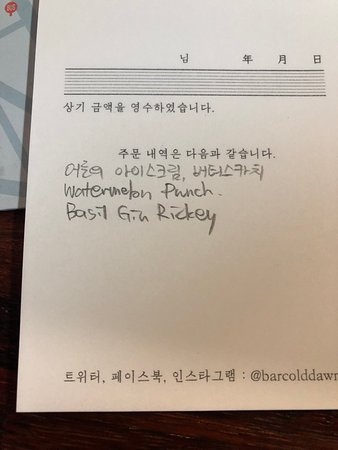 님 年 月 日
상기 금액을 영수하였습니다.
주문 내역은 다음과 같습니다.
어른의 아이스크림, 버터스카치
Watermelon Punch.
Basil Gin Rickey
트위터, 페이스북, 인스타그램 : @barcolddawn